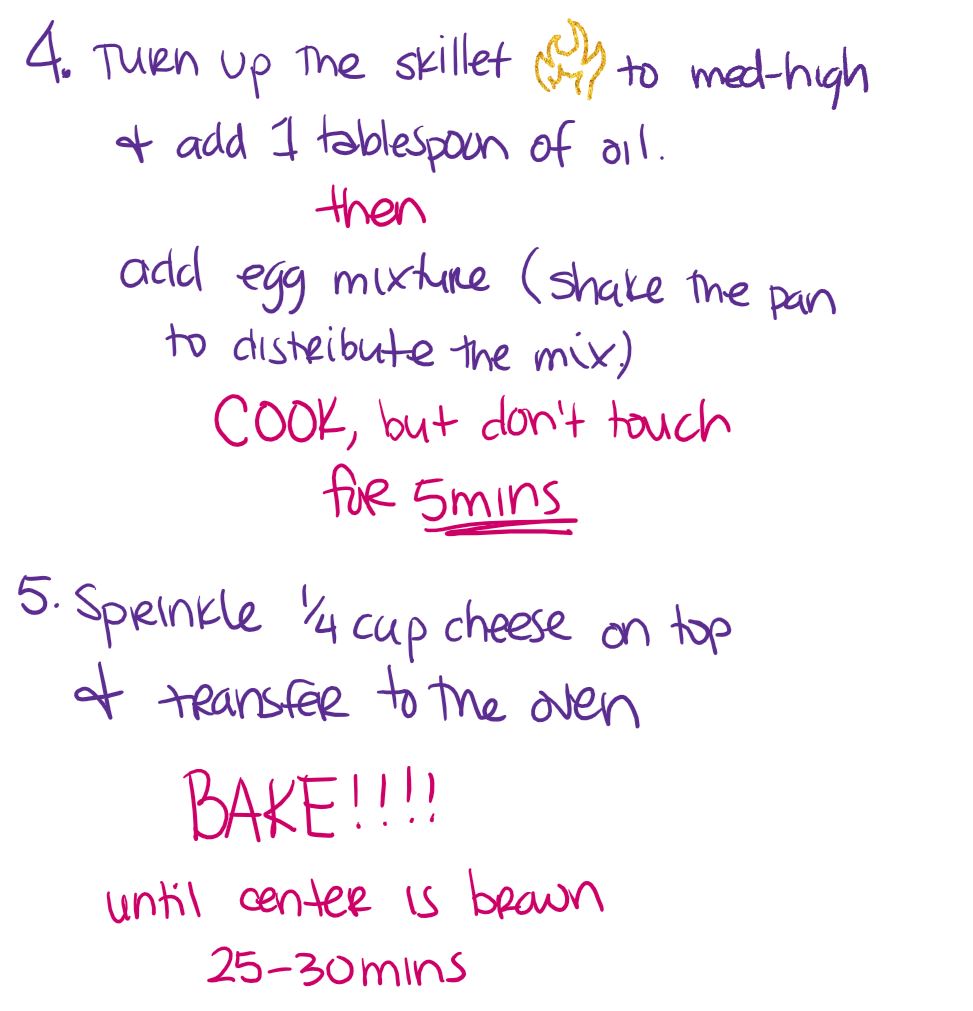 4. Turn up the skillet to med-high
& add 1 tablespoon of oil.
then
add egg mixture (shake the pan
to distribute the mix)
COOK, but don't touch
for 5mins
5. Sprinkle 1/4 cup cheese on top
& transfer to the oven
BAKE!!!!
until center is brown
25-30mins